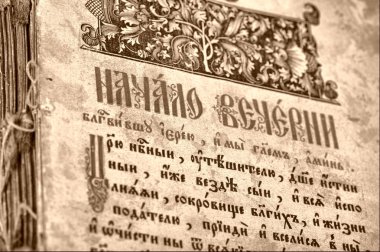 НАЧА́ЛО ВЕЧЕ́РНИ
Бл҃гви́вшꙋ і҆ере́ю, и҆ мы̀ гл҃емъ, а҆ми́нь.
Цр҃ю̀ нбⷭ҇ный, ᲂу҆тѣ́шителю, дш҃е и҆́стин
ный, и҆́же вездѣ̀ сы́й, и҆ всѧ̑ и҆спо
лнѧ́ѧй, сокро́вище бл҃ги́хъ, и҆ жи́зни
пода́телю, прїидѝ и҆ всели́сѧ в
и҆ ѡ҆чи́сти ны̀ ѿ всѧ́